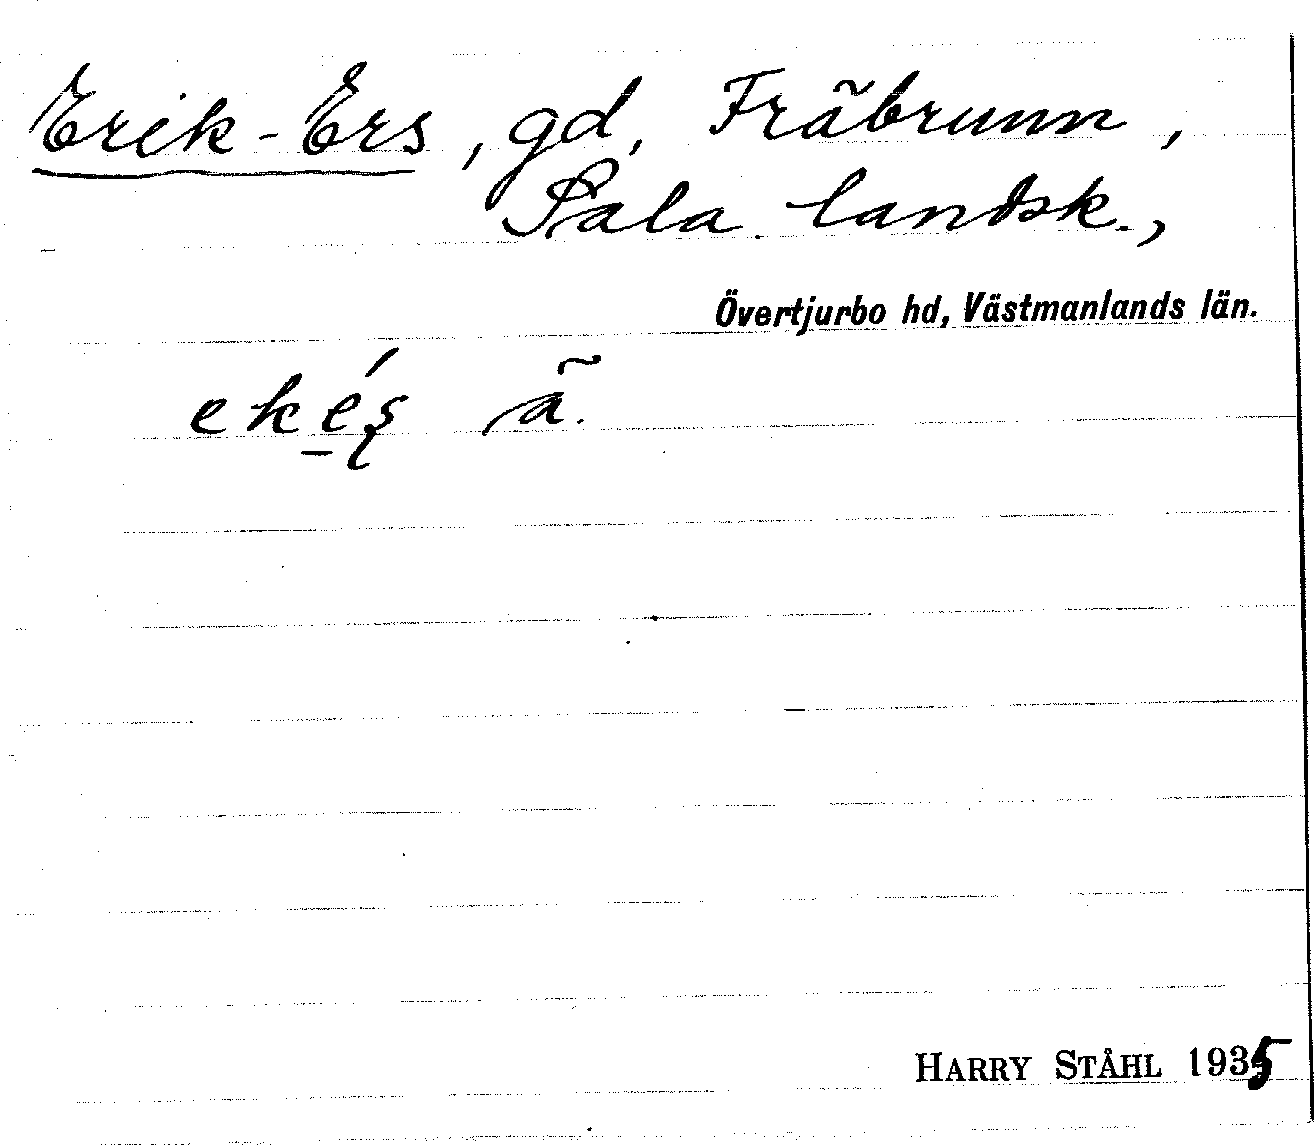 Erik-Ers, gd, Fräbrunn,
Sala landsk.,
Övertjurbo hd, Västmanlands län.
ekés̨ ä.
HARRY STÅHL 1935